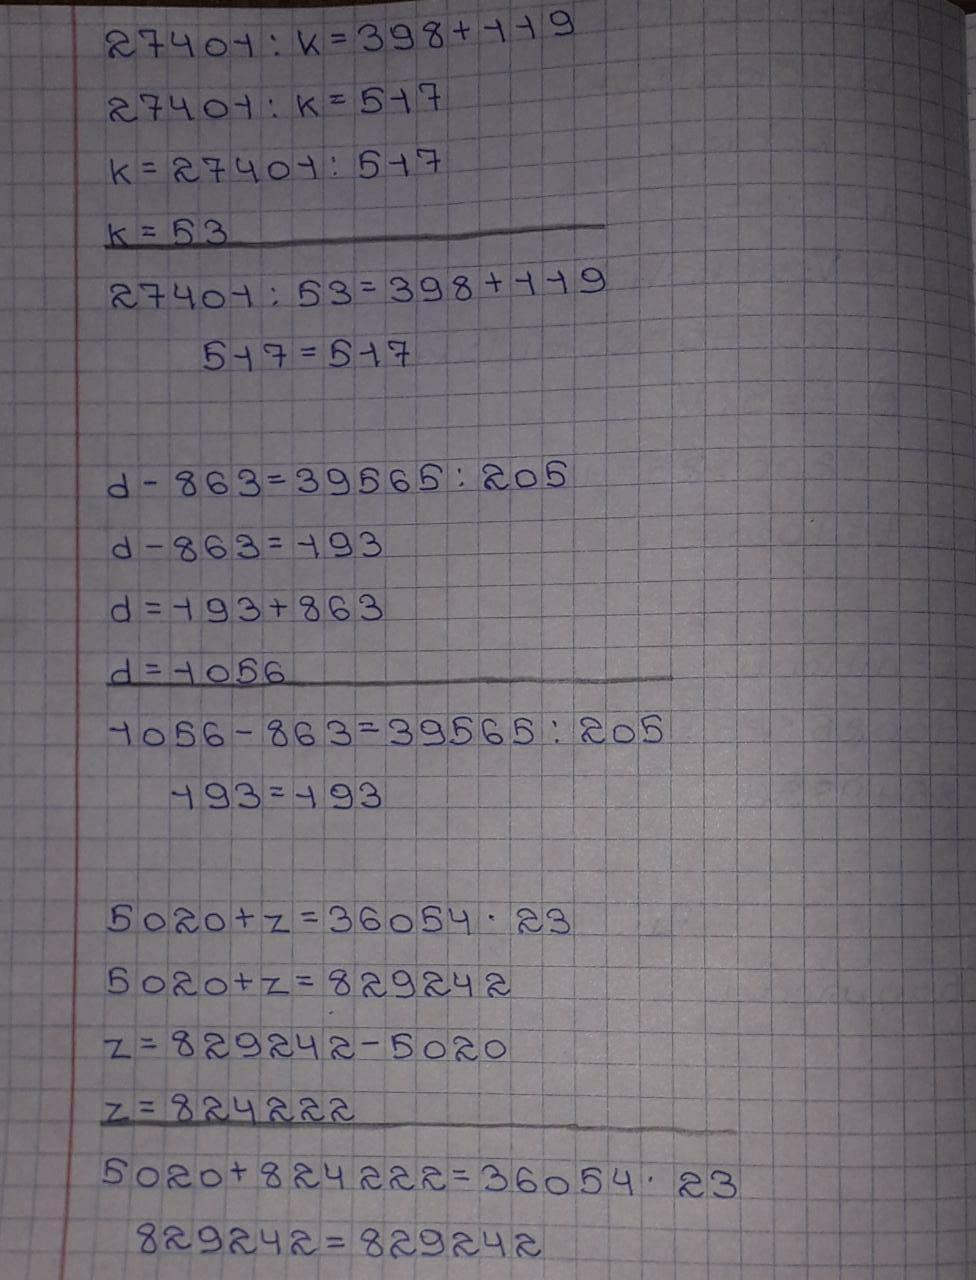 27401 : k = 398 + 119
27401 : k = 517
k = 27401 : 517
k = 53
27401 : 53 = 398 + 119
517 = 517
d - 863 = 39565 : 205
d - 863 = 193
d = 193 + 863
d = 1056
1056 - 863 = 39565 : 205
193 = 193
5020 + z = 36054 · 23
5020 + z = 829242
z = 829242 - 5020
z = 824222
5020 + 824222 = 36054 · 23
829242 = 829242